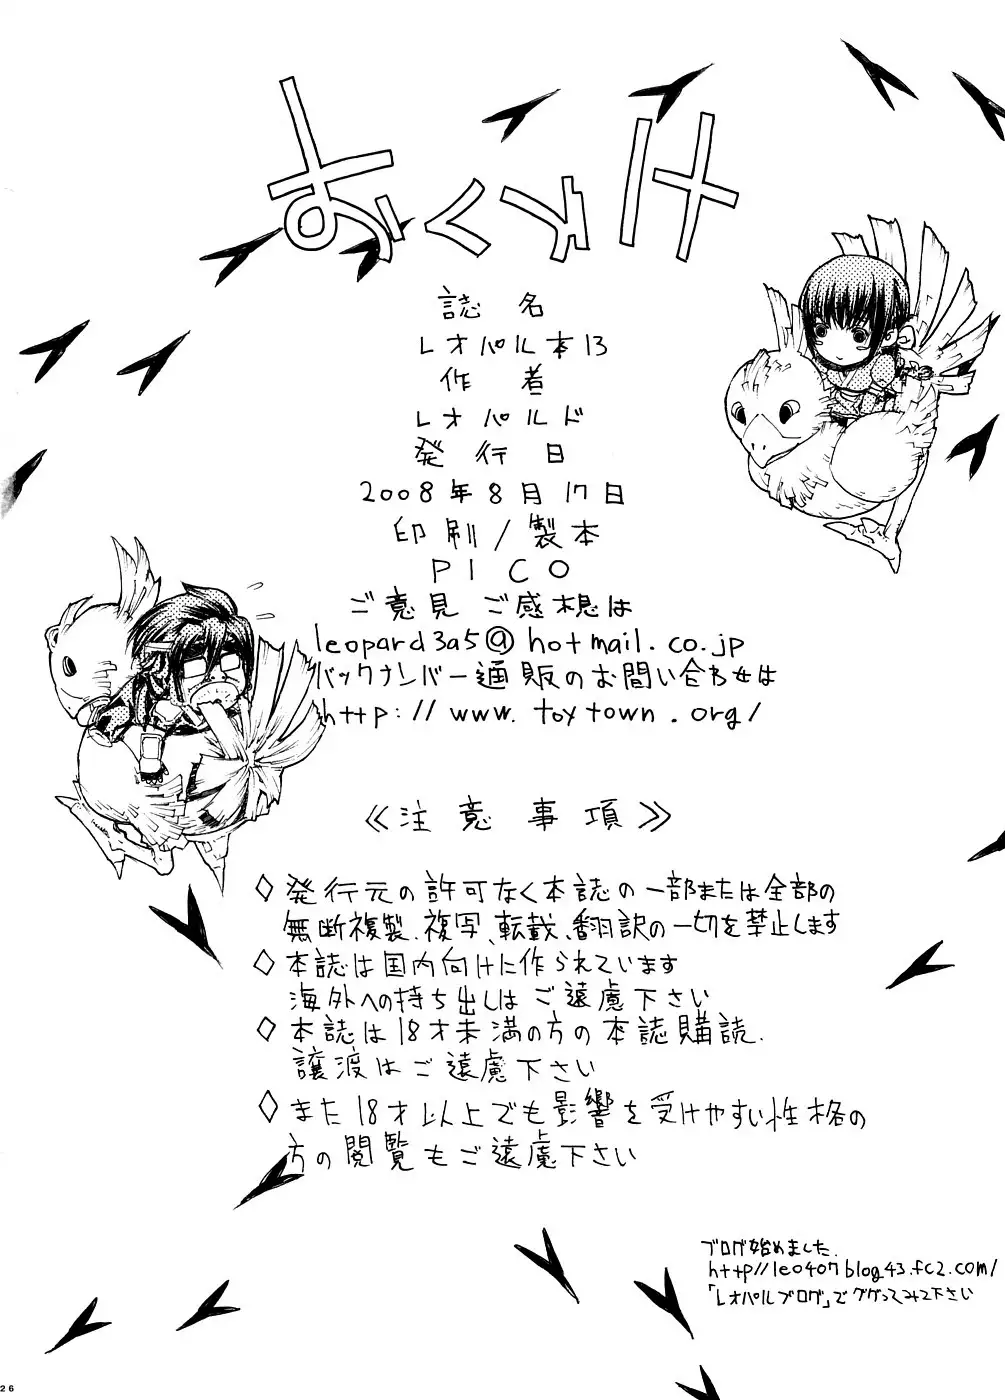 おくづけ
誌名
レオパル本13
作者
レオパルド
発行日
2008年8月17日
印刷/製本
PICO
ご意見 ご感想は
leopard3a5@hotmail.co.jp
バックナンバー通販のお問い合わせは
http://www.toytown.org/
≪注意事項≫
◇発行元の許可なく本誌の一部または全部の
無断複製、複写、転載、翻訳の一切を禁止します
◇本誌は国内向けに作られています
海外への持ち出しはご遠慮下さい
◇本誌は18才未満の方の本誌購読、
譲渡はご遠慮下さい
◇また18才以上でも影響を受けやすい性格の
方の閲覧もご遠慮下さい
ブログ始めました.
http//leo407blog43.fc2.com/
「レオパルブログ」でググってみて下さい
26